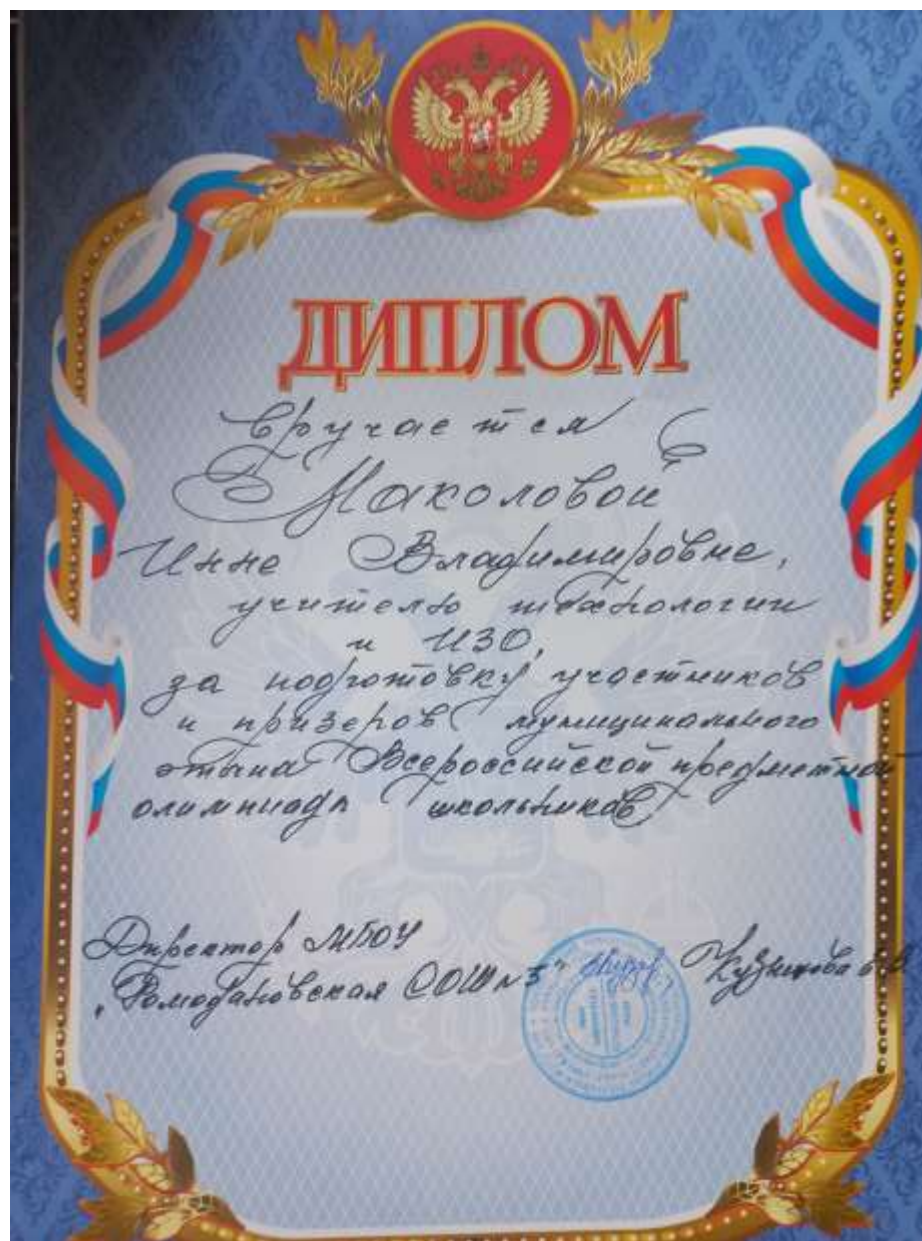 ДИПЛОМ
вручается
Маколовой
Инне Владимировне,
учителю технологии
и ИЗО,
за подготовку участников
и призеров муниципального
этапа Всероссийской предметной
олимпиады школьников
Директор МБОУ
"Ромодановская СОШ №3" Кузнецова